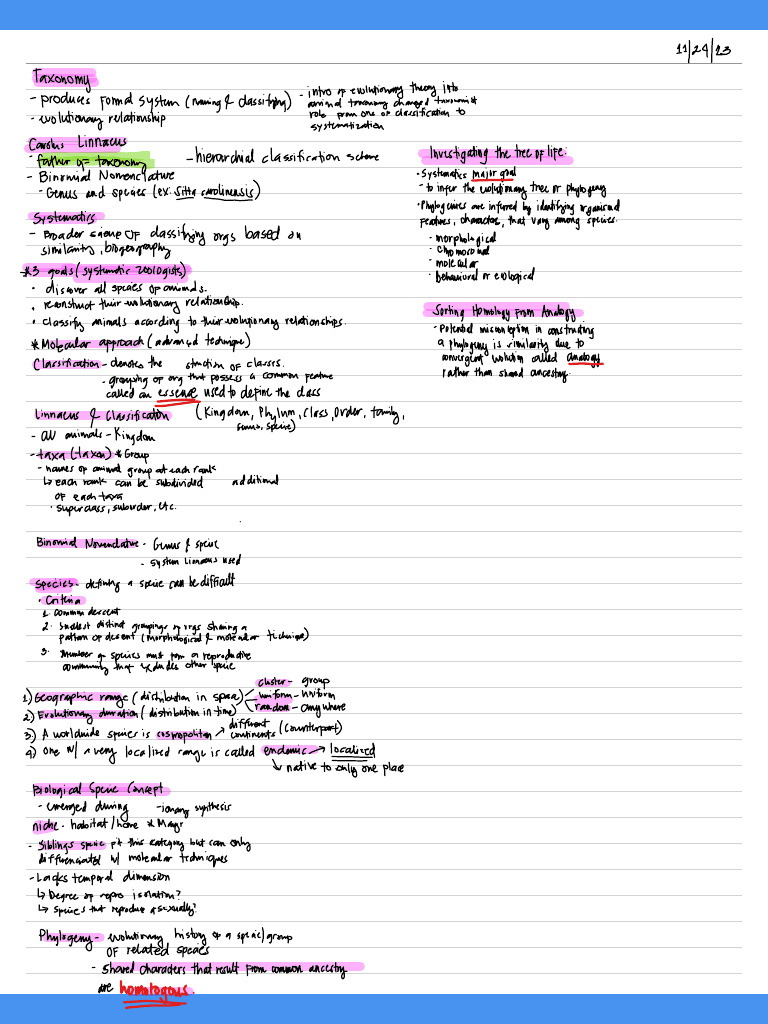 11/24/23
Taxonomy
- produces formal system (naming & classifying)
- evolutionary relationship
- intro of evolutionary theory into
animal taxonomy changed taxonomist
role from one of classification to
systematization
Carolus Linnaeus
- father of taxonomy
- hierarchial classification scheme
- Binomial Nomenclature
- Genus and species (ex: Sitta carolinensis)
Systematics
- Broader science OF classifying orgs based on
similarity, biogeography
*3 goals (systematic zoologists)
• discover all species of animals.
• reconstruct their evolutionary relationship.
• classify animals according to their evolutionary relationships.
* Molecular approach (advanced technique)
Classification - denotes the struction of classes.
- grouping of org that possess a common feature
called an essence used to define the class
Linnaeus & Classification (Kingdom, Phylum, Class, Order, family,
Genus, Specie)
- all animals - Kingdom
- taxa (taxon) * Group
- names of animal group at each rank
↳ each rank can be subdivided additional
of each taxa
• superclass, suborder, etc.
Binomial Nomenclature - Genus & specie
- system linnaeus used
Species - defining a specie can be difficult
• Criteria
1. common descent
2. smallest distinct groupings of orgs sharing a
pattern of descent (morphological & molecular technique)
3. Member of species must form a reproductive
community that excludes other specie
1) Geographic range (distribution in space)
cluster - group
uniform - uniform
random - anywhere
2) Evolutionary duration (distribution in time)
3) A worldwide species is cosmopolitan → different
continents (counterpart)
4) One w/ a very localized range is called endemic → localized
↳ native to only one place
Biological Specie Concept
- emerged during - ionary synthesis
niche - habitat/home * Mayr
- Siblings specie fit this category but can only
differenciated w/ molecular techniques
- Lacks temporal dimension
↳ Degree of repro isolation?
↳ species that reproduce asexually?
Phylogeny - evolutionary history of a specie/group
OF related species
- shared characters that result from common ancestry
are homologous.
Investigating the tree of life:
• Systematics major goal
- to infer the evolutionary tree or phylogeny
• Phylogenies are inferred by identifying organismal
features, character, that vary among species.
- morphological
- Chomosomal
- molecular
- Behavioral or ecological
Sorting Homology From Analogy
- Potential misconception in constructing
a phylogeny is similarity due to
convergent evolution called analogy
rather than shared ancestry.